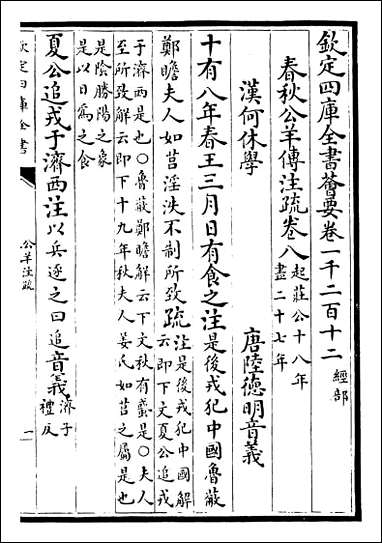 欽定四庫全書薈要卷一千二百十二 經部
春秋公羊傳注疏卷八 起莊公十八年
盡二十七年
漢何休學 唐陸德明音義
十有八年春王三月日有食之注是後戎犯中國魯蔽
鄭瞻夫人如莒淫泆不制所致疏 注是後戎犯中國解
云即下文夏公追戎
于濟西是也○魯蔽鄭瞻解云下文秋有是○夫人
至所致解云即下十九年秋夫人姜氏如莒之屬是也
是陰勝陽之象
是以日為之食
夏公追戎于濟西注以兵逐之曰追音義 濟子
禮反
欽定四庫全書
公羊注疏
一